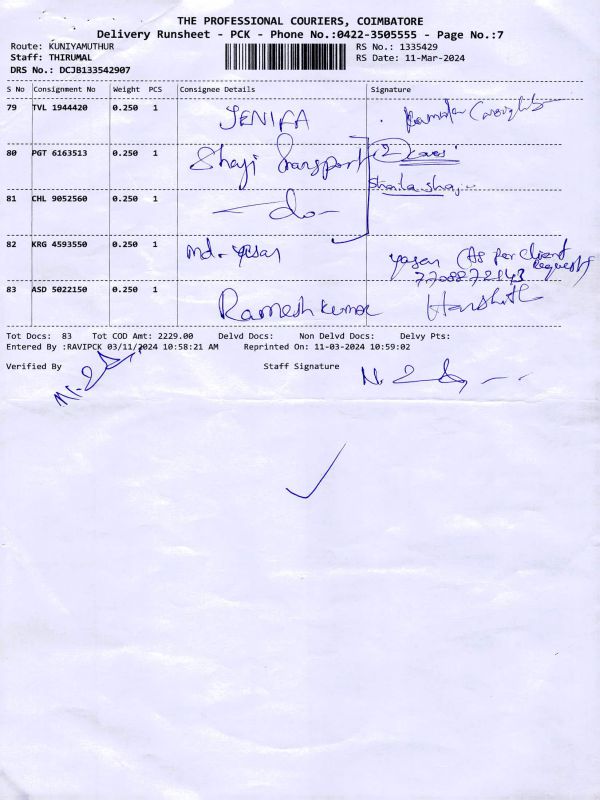 THE PROFESSIONAL COURIERS, COIMBATORE
Delivery Runsheet - PCK - Phone No.:0422-3505555 - Page No.:7
Route: KUNIYAMUTHUR RS No.: 1335429
Staff: THIRUMAL RS Date: 11-Mar-2024
DRS No.: DCJB133542907
S No Consignment No Weight PCS Consignee Details Signature
79 TVL 1944420 0.250 1 JENIFA
80 PGT 6163513 0.250 1 Shaji Transport 2 Covers
Shaila shaji
81 CHL 9052560 0.250 1 -do-
82 KRG 4593550 0.250 1 md. yasar yasar (As per client Request)
7708872143
83 ASD 5022150 0.250 1 Ramesh kumar Harshith
Tot Docs: 83 Tot COD Amt: 2229.00 Delvd Docs: Non Delvd Docs: Delvy Pts:
Entered By :RAVIPCK 03/11/2024 10:58:21 AM Reprinted On: 11-03-2024 10:59:02
Verified By Staff Signature